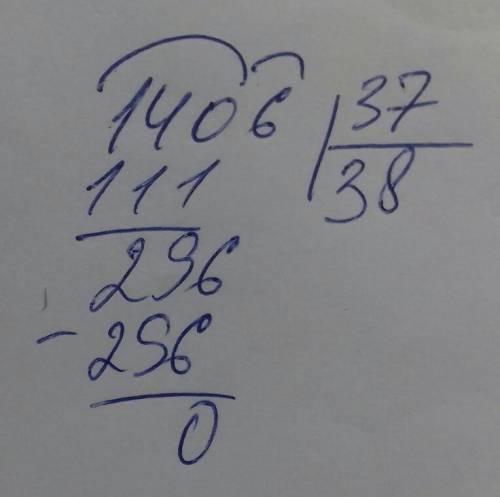 1406 37
111 38
296
- 296
0